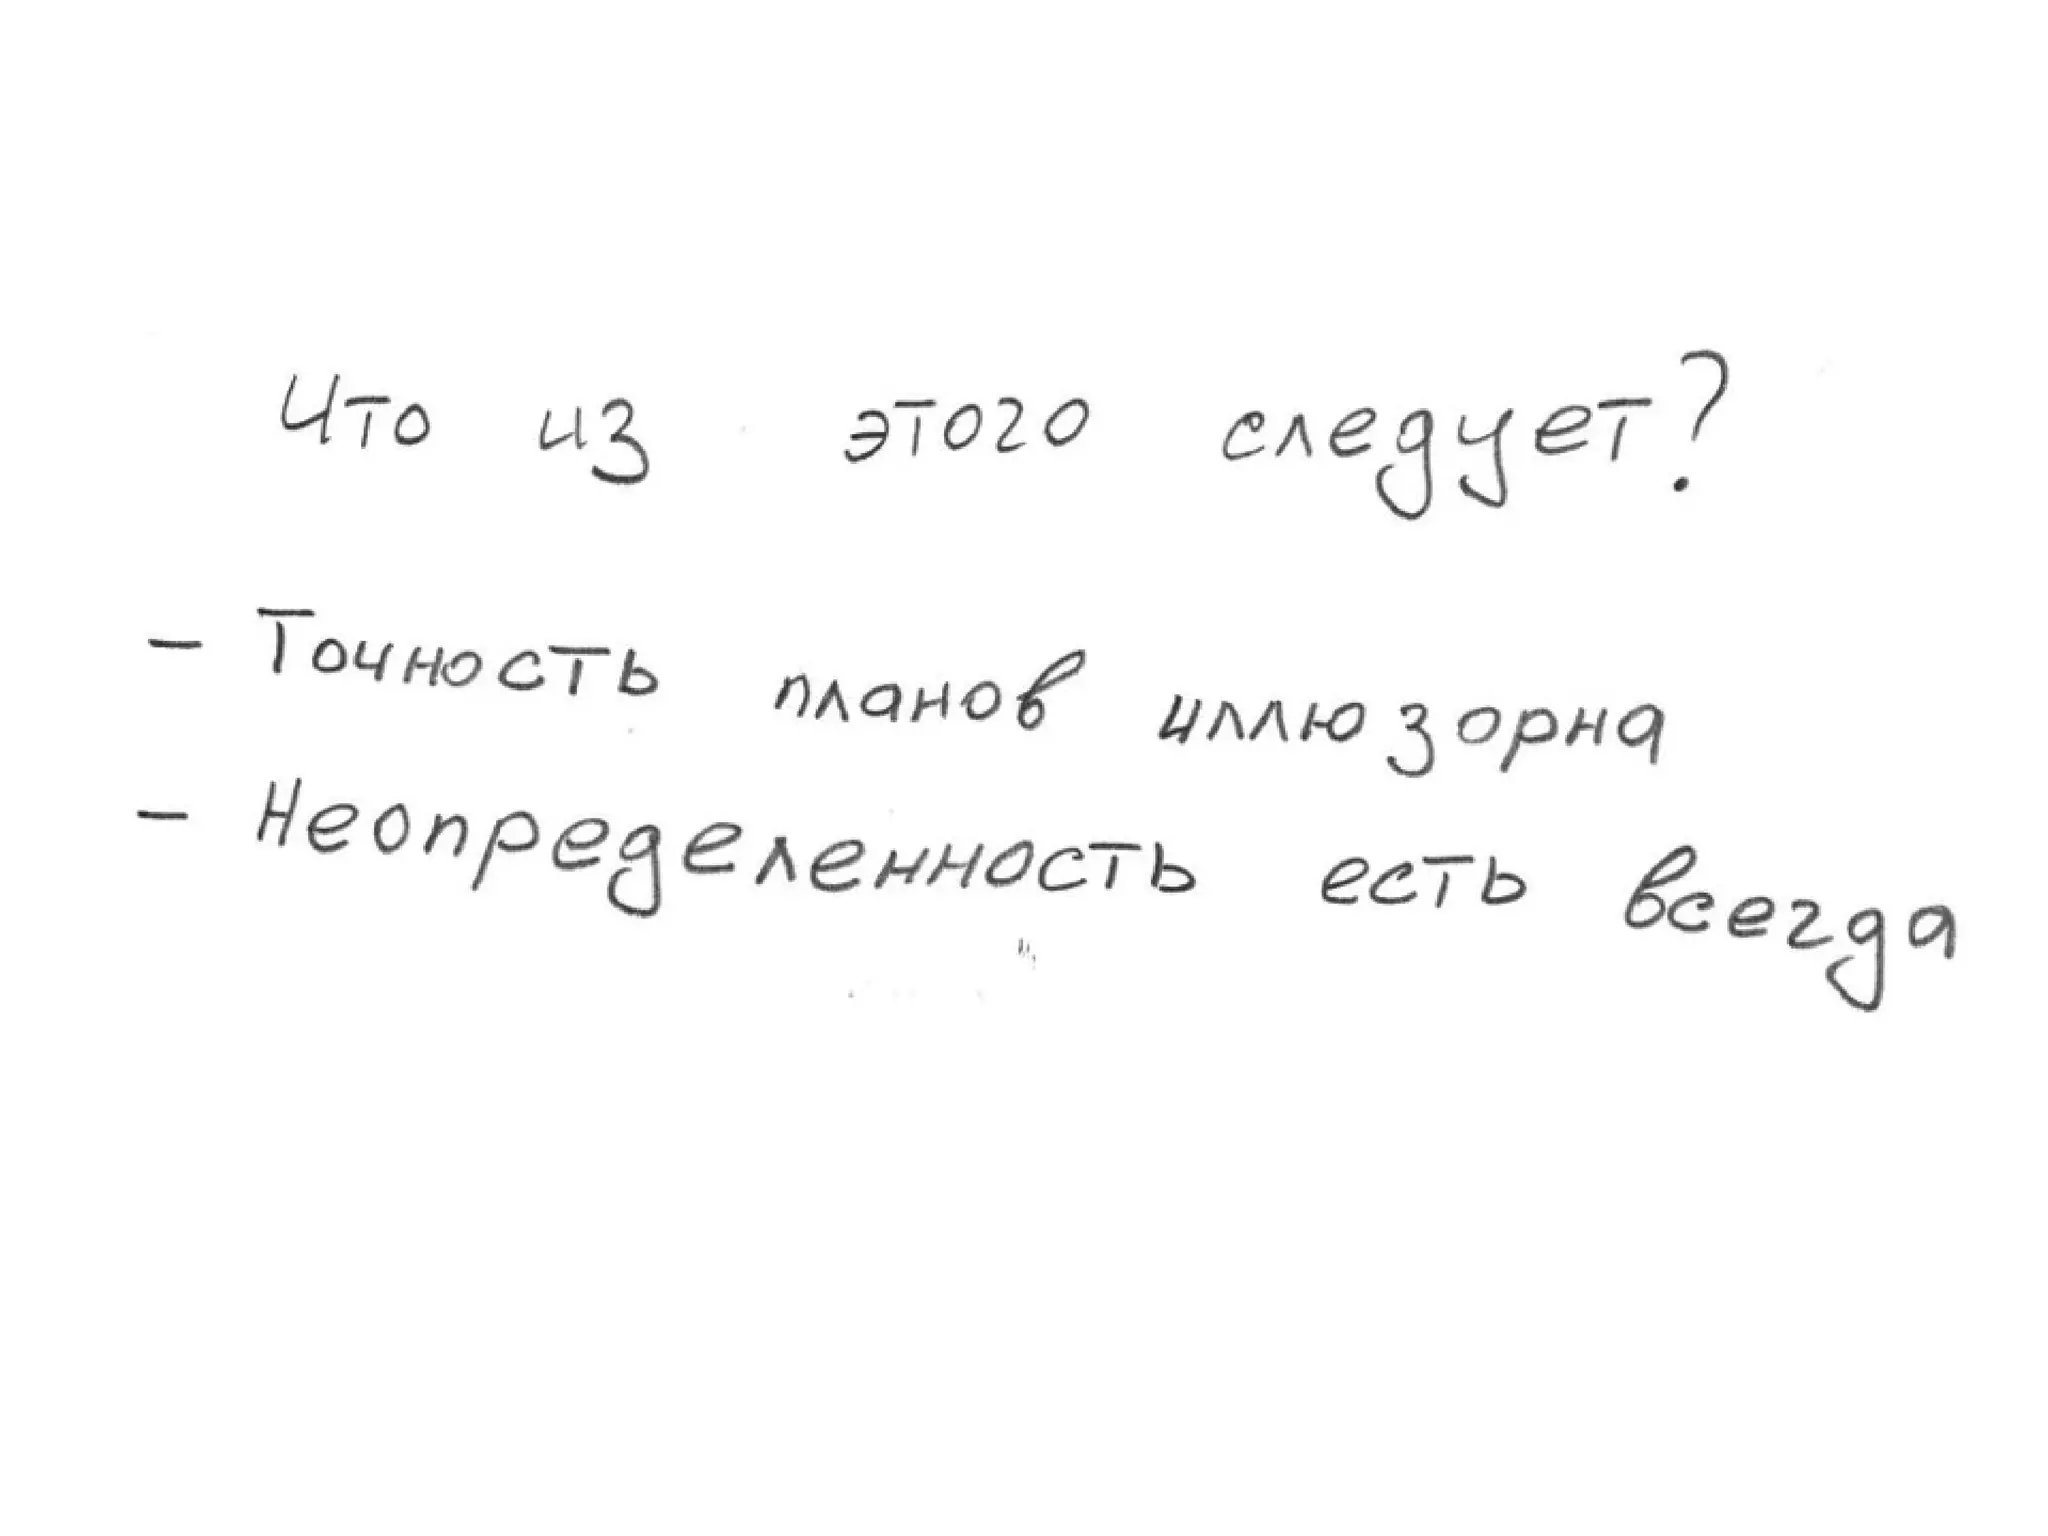 Что из этого следует?
- Точность планов иллюзорна
- Неопределенность есть всегда